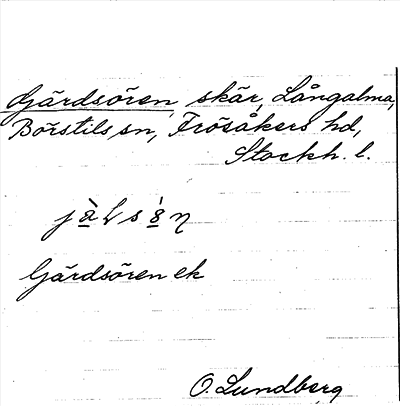 Gärdsören, skär, Långalma,
Börstils sn, Frösåkers hd,
Stockh. l.
Gärdsören ek
O Lundberg